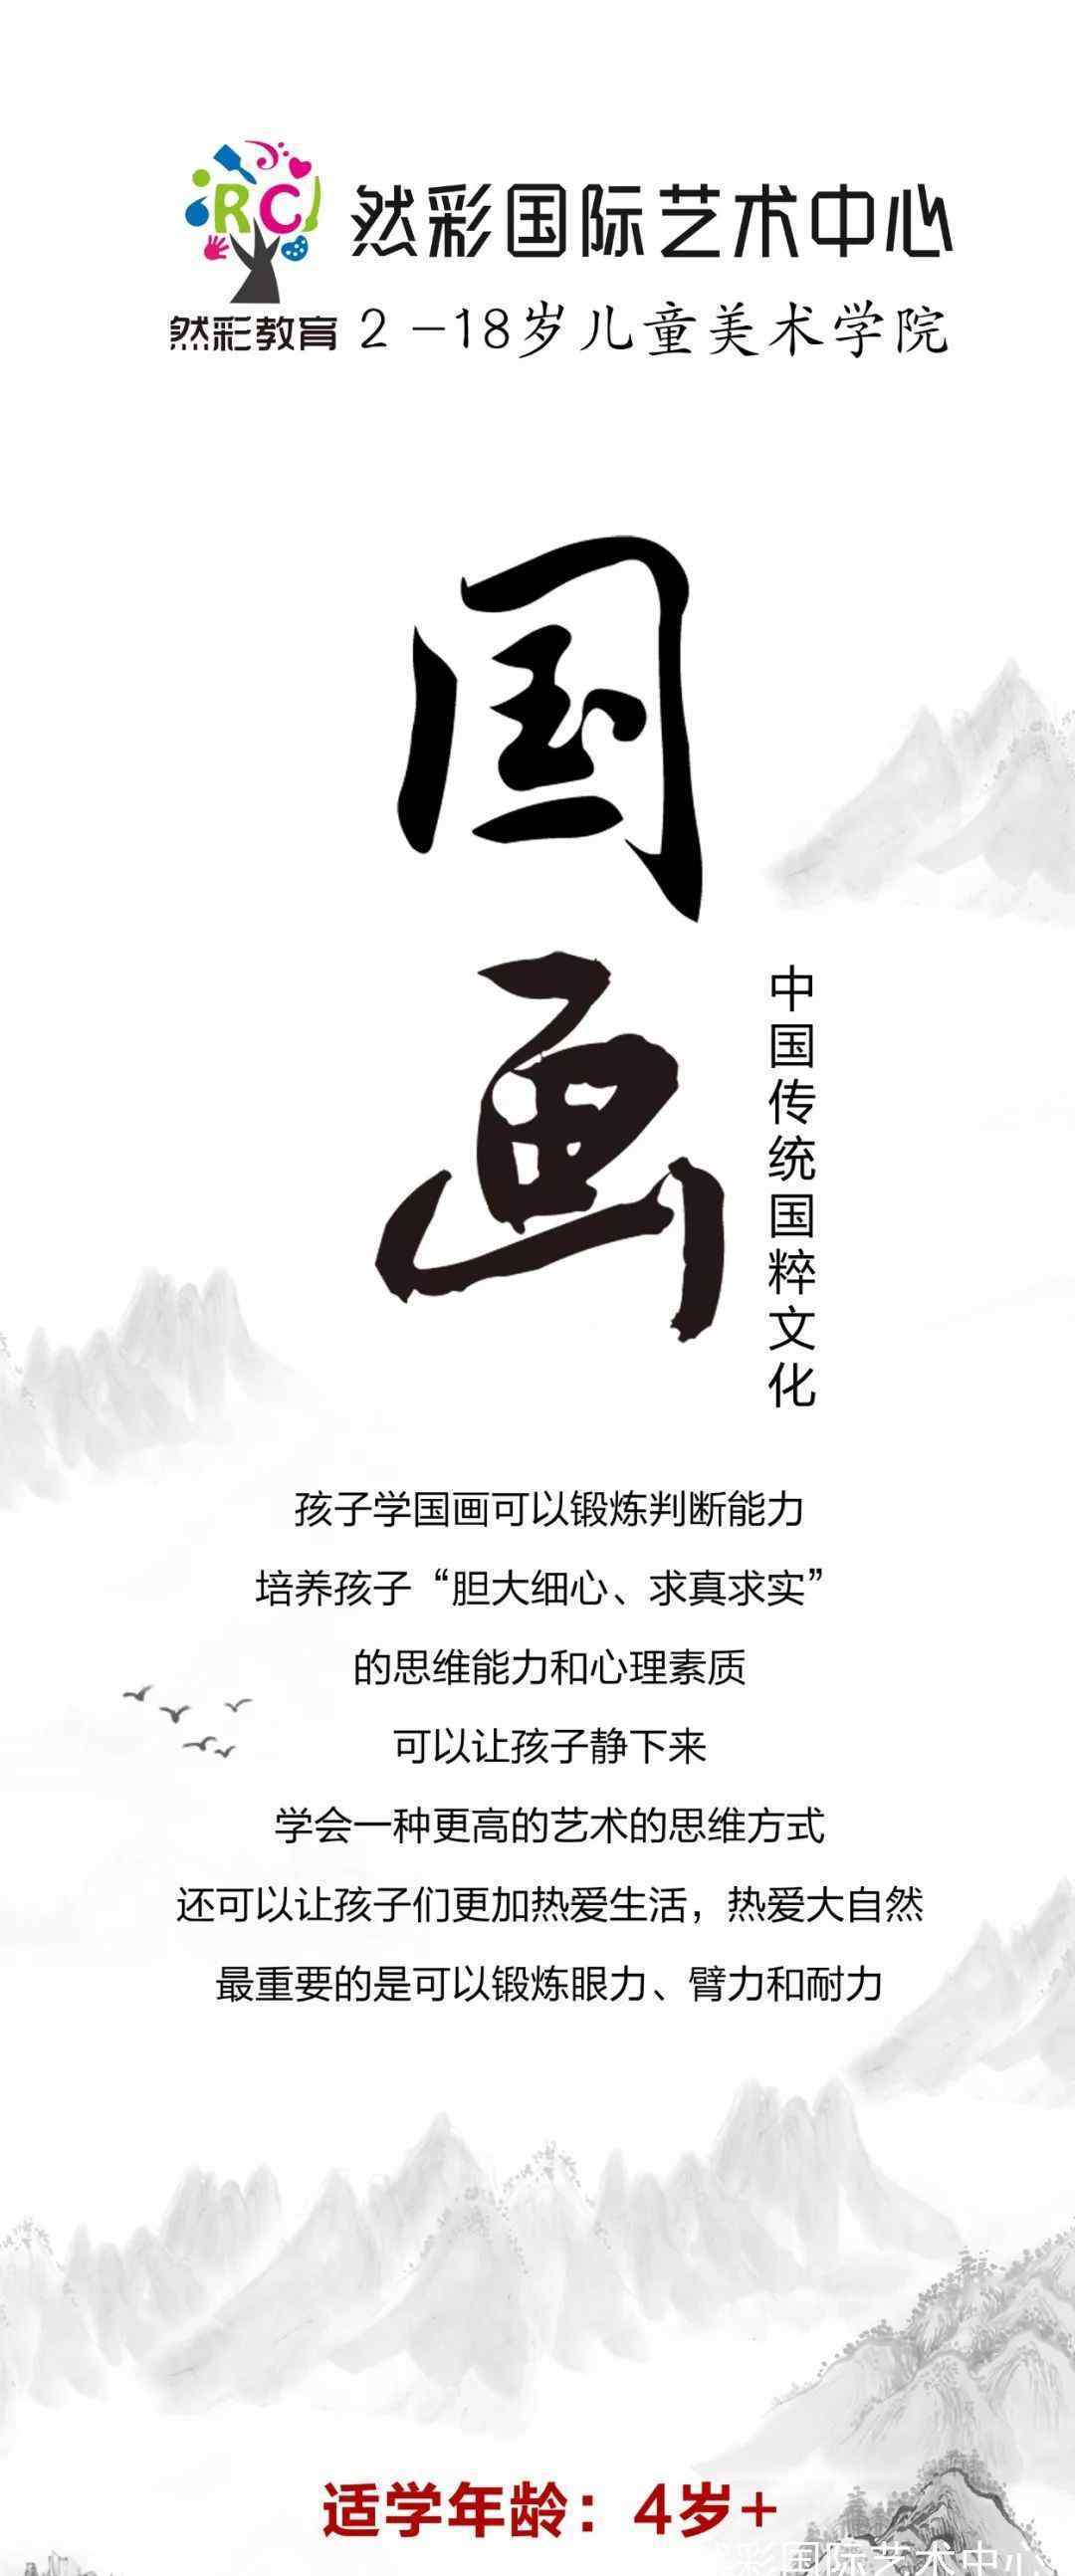 RC
然彩国际艺术中心
然彩教育
2-18岁儿童美术学院
国画
中国传统国粹文化
孩子学国画可以锻炼判断能力
培养孩子“胆大细心、求真求实”
的思维能力和心理素质
可以让孩子静下来
学会一种更高的艺术的思维方式
还可以让孩子们更加热爱生活，热爱大自然
最重要的是可以锻炼眼力、臂力和耐力
适学年龄：4岁+
彩国际艺术中心